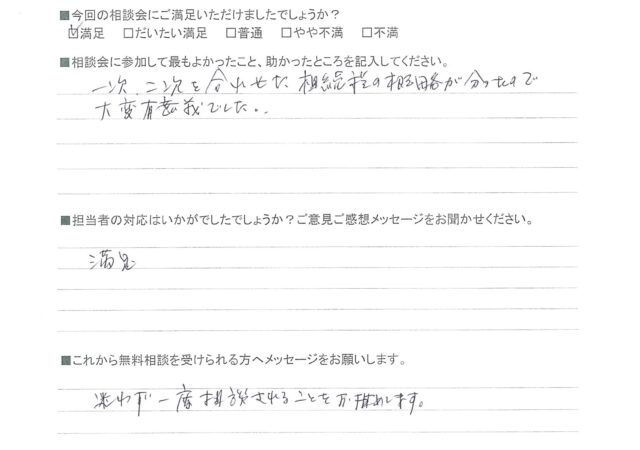 ■今回の相談会にご満足いただけましたでしょうか？
☑満足　□だいたい満足　□普通　□やや不満　□不満
■相談会に参加して最もよかったこと、助かったところを記入してください。
一次、二次を合わせた相続税の概略が分ったので
大変有意義でした。
■担当者の対応はいかがでしたでしょうか？ご意見ご感想メッセージをお聞かせください。
満足
■これから無料相談を受けられる方へメッセージをお願いします。
迷わず一度相談されることをお推めします。